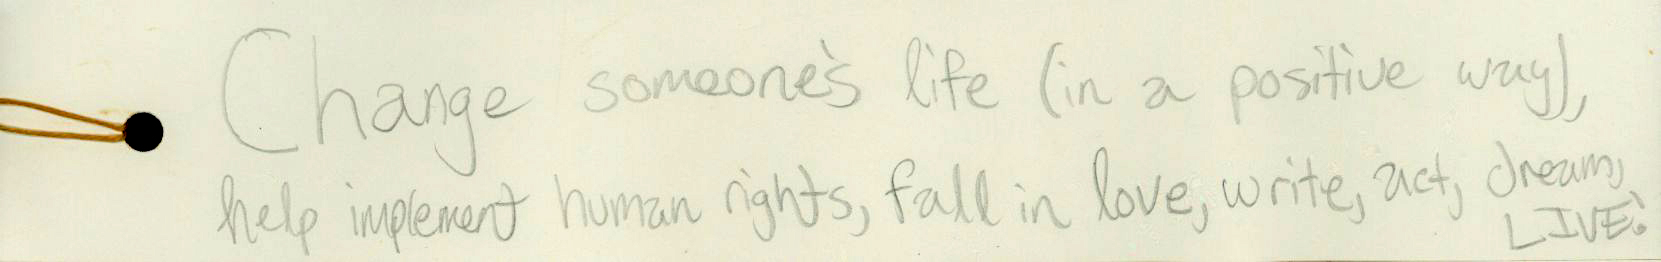 Change someone's life (in a positive way),
help implement human rights, fall in love, write, act, dream,
LIVE!